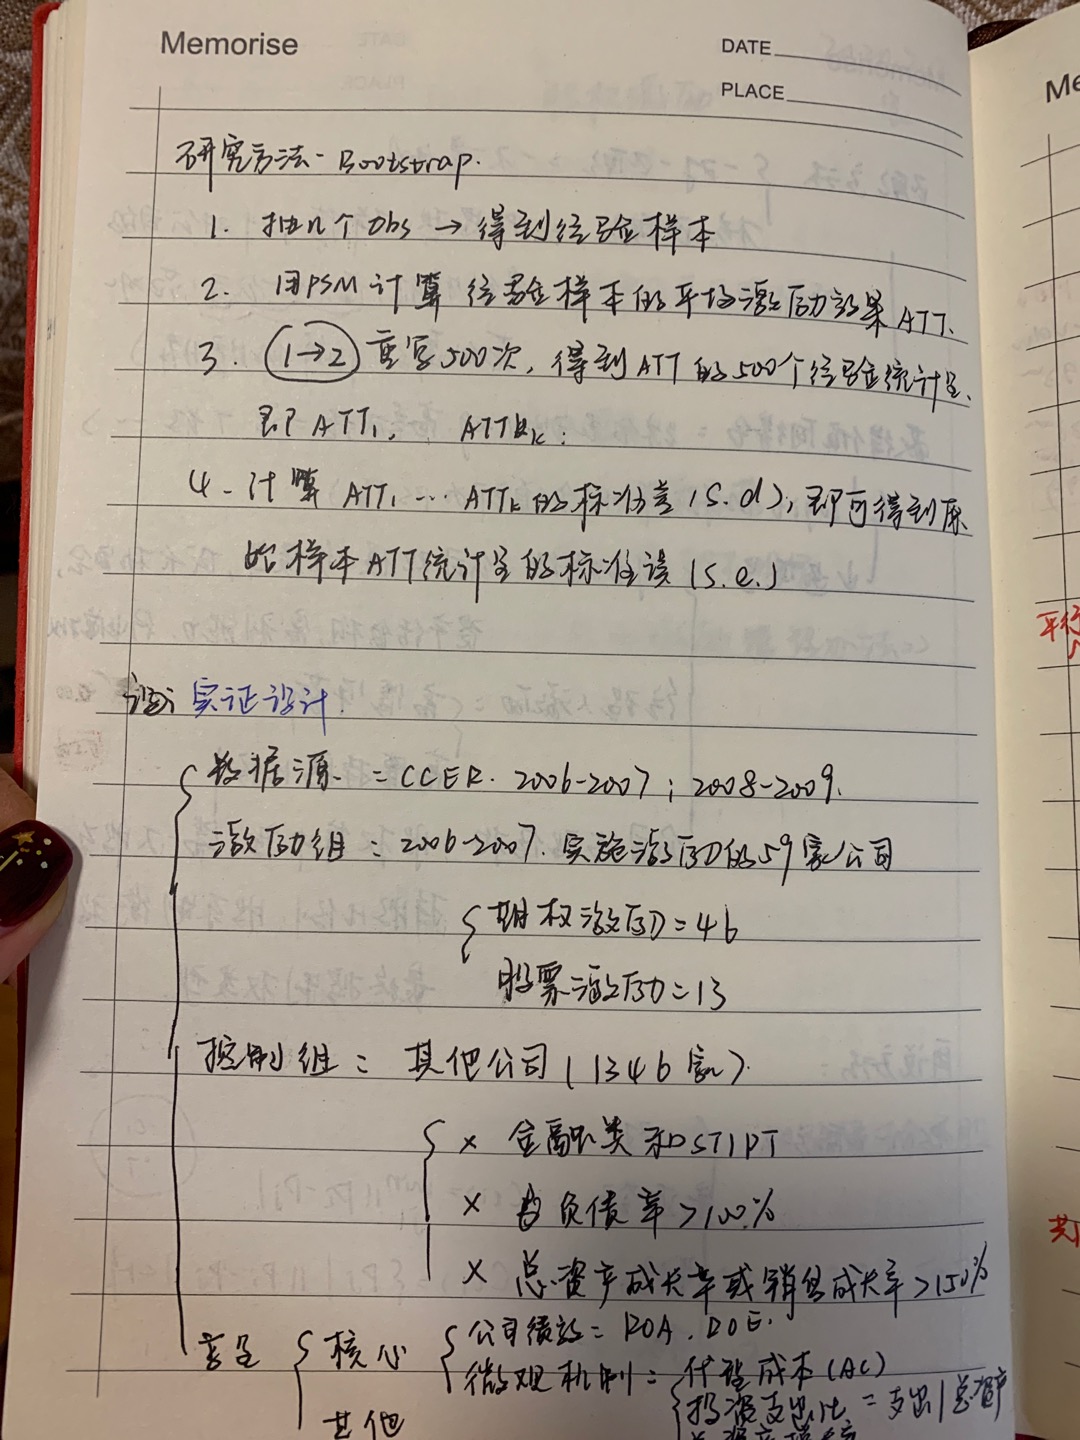 Memorise
DATE
PLACE
研究方法 - Bootstrap.
1. 抽n个obs → 得到经验样本
2. 用PSM计算经验样本的平均激励效果ATT.
3. 1→2 重写500次, 得到ATT的500个经验统计量.
即ATT1, ATTk;
4. 计算ATT1 ... ATTk的标准差(s.d), 即可得到原
始样本ATT统计量的标准误(s.e.)
实证设计.
数据源 = CCER. 2006-2007; 2008-2009.
激励组 = 2006-2007. 实施激励的59家公司
期权激励 = 46
股票激励 = 13
控制组 = 其他公司(1346家)
× 金融类和ST、PT
× 负债率>100%
× 总资产成长率或销售成长率>150%
变量
核心
公司绩效 = ROA. ROE.
微观机制 = 代理成本(AC)
投资支出比 = 支出/总资产
其他
Me
平行
共